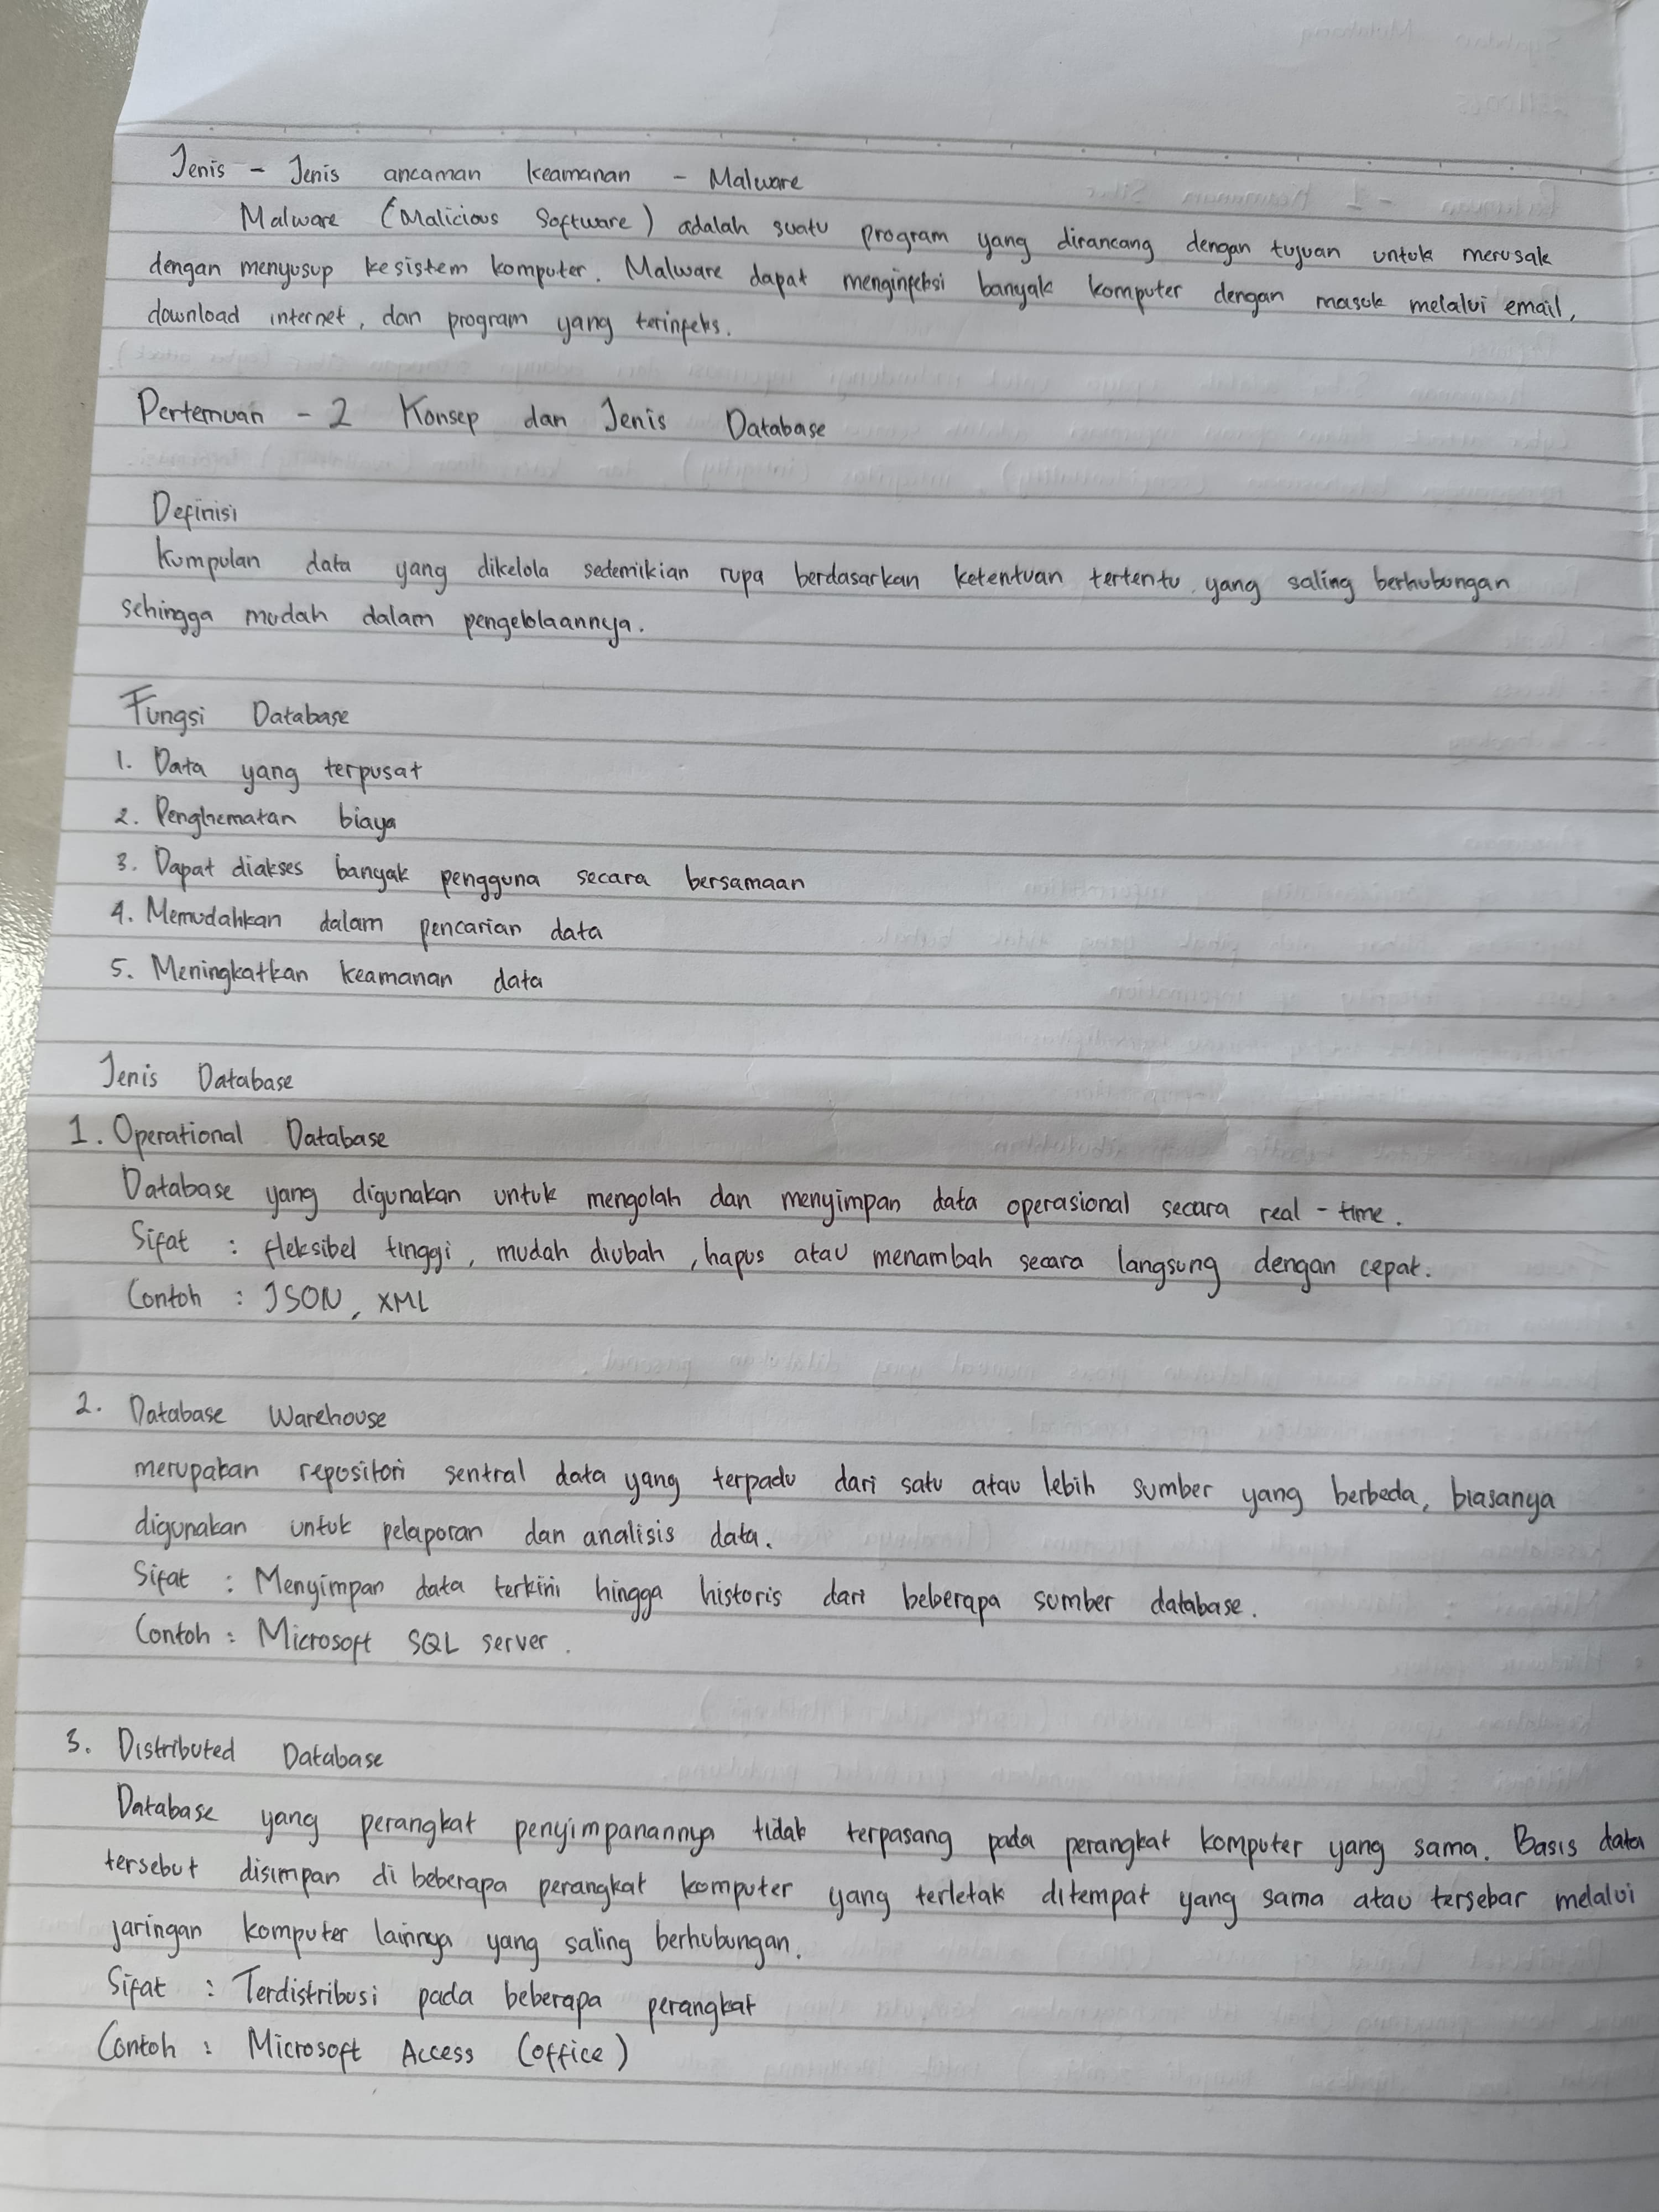 Jenis - Jenis ancaman keamanan - Malware
Malware (Malicious Software) adalah suatu program yang dirancang dengan tujuan untuk merusak
dengan menyusup kesistem komputer. Malware dapat menginfeksi banyak komputer dengan masuk melalui email,
download internet, dan program yang terinfeks.
Pertemuan - 2 Konsep dan Jenis Database
Definisi
Kumpulan data yang dikelola sedemikian rupa berdasarkan ketentuan tertentu yang saling berhubungan
sehingga mudah dalam pengelolaannya.
Fungsi Database
1. Data yang terpusat
2. Penghematan biaya
3. Dapat diakses banyak pengguna secara bersamaan
4. Memudahkan dalam pencarian data
5. Meningkatkan keamanan data
Jenis Database
1. Operational Database
Database yang digunakan untuk mengolah dan menyimpan data operasional secara real - time.
Sifat : fleksibel tinggi, mudah diubah, hapus atau menambah secara langsung dengan cepat.
Contoh : JSON, XML
2. Database Warehouse
merupakan repositori sentral data yang terpadu dari satu atau lebih sumber yang berbeda, biasanya
digunakan untuk pelaporan dan analisis data.
Sifat : Menyimpan data terkini hingga historis dari beberapa sumber database.
Contoh : Microsoft SQL server.
3. Distributed Database
Database yang perangkat penyimpanannya tidak terpasang pada perangkat komputer yang sama. Basis data
tersebut disimpan di beberapa perangkat komputer yang terletak ditempat yang sama atau tersebar melalui
jaringan komputer lainnya yang saling berhubungan.
Sifat : Terdistribusi pada beberapa perangkat
Contoh : Microsoft Access (office)